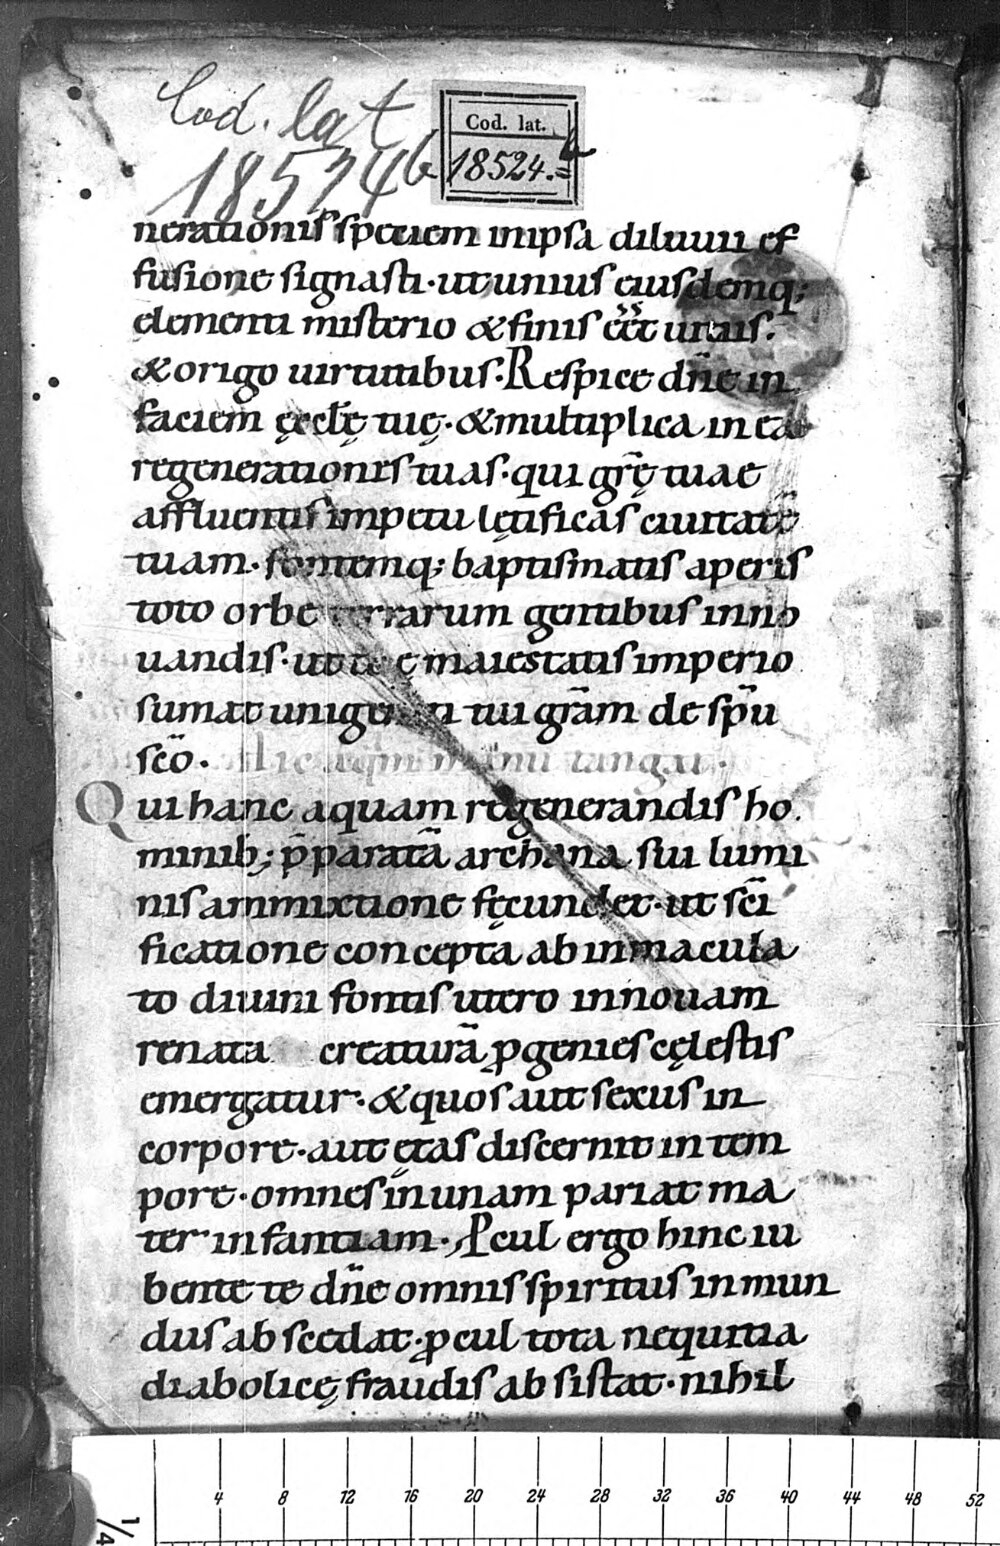 Cod. lat
18524b
Cod. lat.
18524.b
nerationis speciem in ipsa diluuii ef
fusione signasti· ut unius eiusdemq;
elementi misterio & finis eēt uitiis.
& origo uirtutibus· Respice dn̄e in
faciem ęccl̄ę tuę· & multiplica in ea
regenerationes tuas· qui gr̄ę tuae
affluentis impetu lętificas ciuitatē
tuam· fontemq; baptismatis aperis
toto orbe terrarum gentibus inno
uandis· ut tuę maiestatis imperio
sumat unigeniti tui grām de spū
scō· Hic tangat·
Qui hanc aquam regenerandis ho
minib; p̄paratā archana sui lumi
nis ammixtione fęcundet· ut scī
ficatione concepta ab inmacula
to diuini fontis utero in nouam
renata creaturā ꝓgenies cęlestis
emergat ur· & quos aut sexus in
corpore· aut ętas discernit in tem
pore· omnes in unam pariat ma
ter infantiam· Ꝓcul ergo hinc iu
bente te dn̄e omnis spiritus inmun
dus abscedat· ꝓcul tota nequitia
diabolicę fraudis absistat· nihil
4 8 12 16 20 24 28 32 36 40 44 48 52
1/4